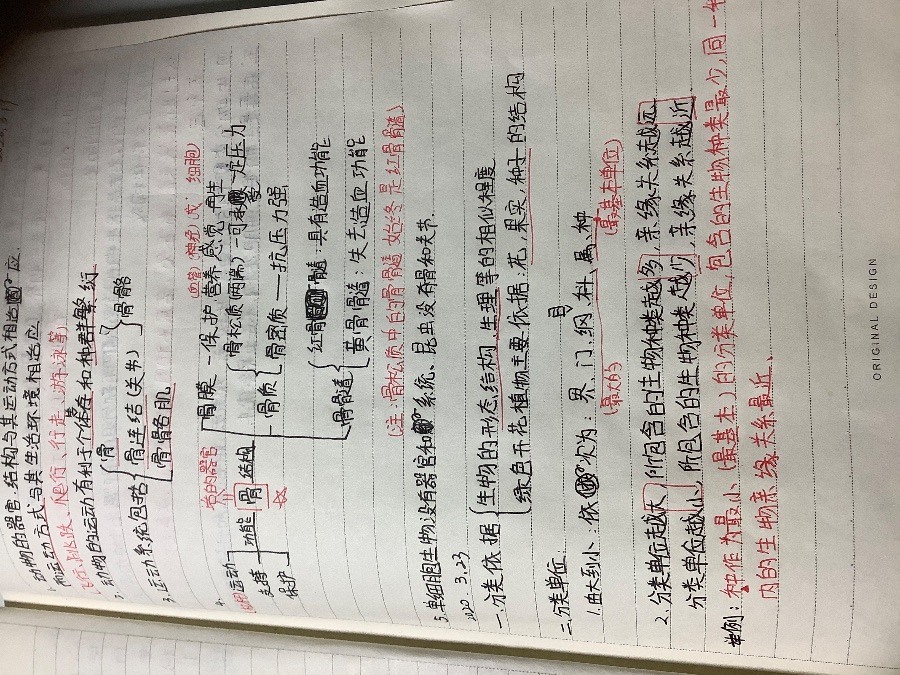 动物的器官、结构与其运动方式相适应.
而运动方式与其生活环境相适应.
(飞行、跳跃、爬行、行走、游泳等)
2. 动物的运动有利于个体生存和种群繁衍
3. 运动系统包括 骨
骨连结(关节)
骨骼肌
骨骼
4.
运动
支持
保护
功能
活的器官
骨
结构
骨膜—保护 营养 感觉 再生
(血管) (神经) (成 细胞)
骨质
骨松质(两端)—可承受一定压力
骨密质—抗压力强
骨骨髓
红骨髓:具有造血功能
黄骨髓:失去造血功能
(注:骨松质中的骨髓 始终是红骨髓)
5. 单细胞生物没有器官和系统、昆虫没有骨和关节.
3.23
一.分类依据 生物的形态结构、生理等的相似程度
绿色开花植物主要依据:花,果实,种子的结构
二.分类单位.
1.由大到小:依次为:界、门、纲、目、科、属、种
(最大的) (最基本单位)
2.分类单位越大,所包含的生物种类越多,亲缘关系越远
分类单位越小,所包含的生物种类越少,亲缘关系越近.
举例:种作为最小(最基本)的分类单位,包含的生物种类最少,同一种
内的生物亲缘关系最近、
ORIGINAL DESIGN